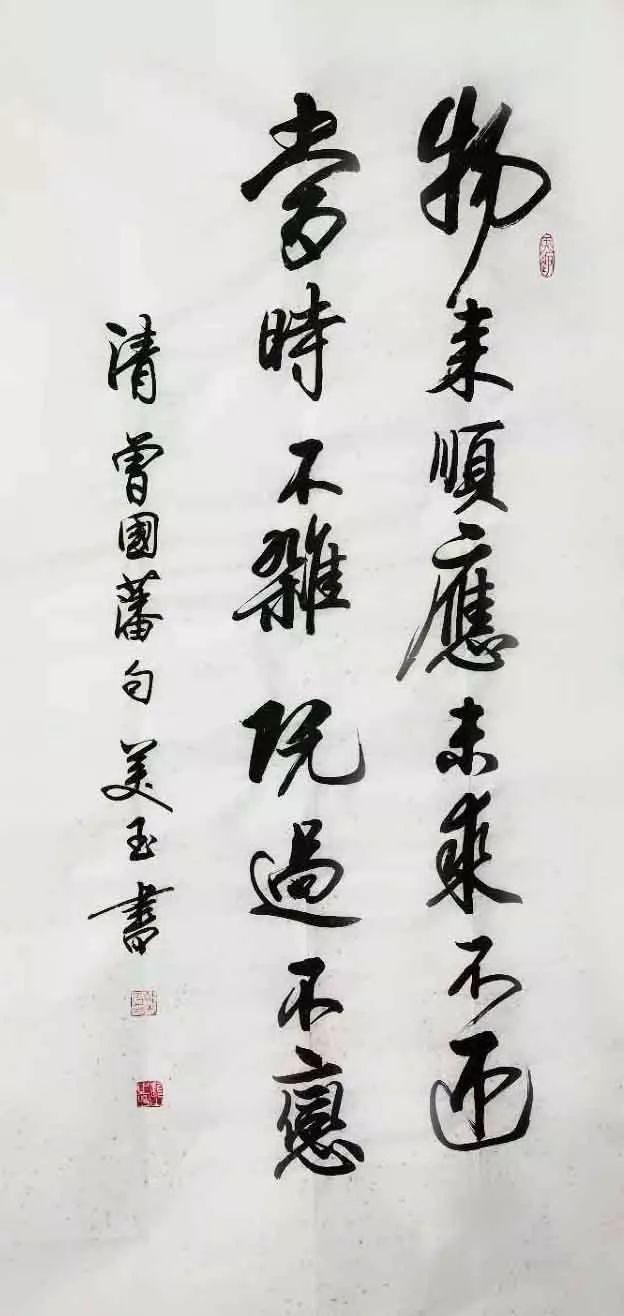 物來順應未來不迎
當時不雜既過不戀
清曾國藩句美玉書